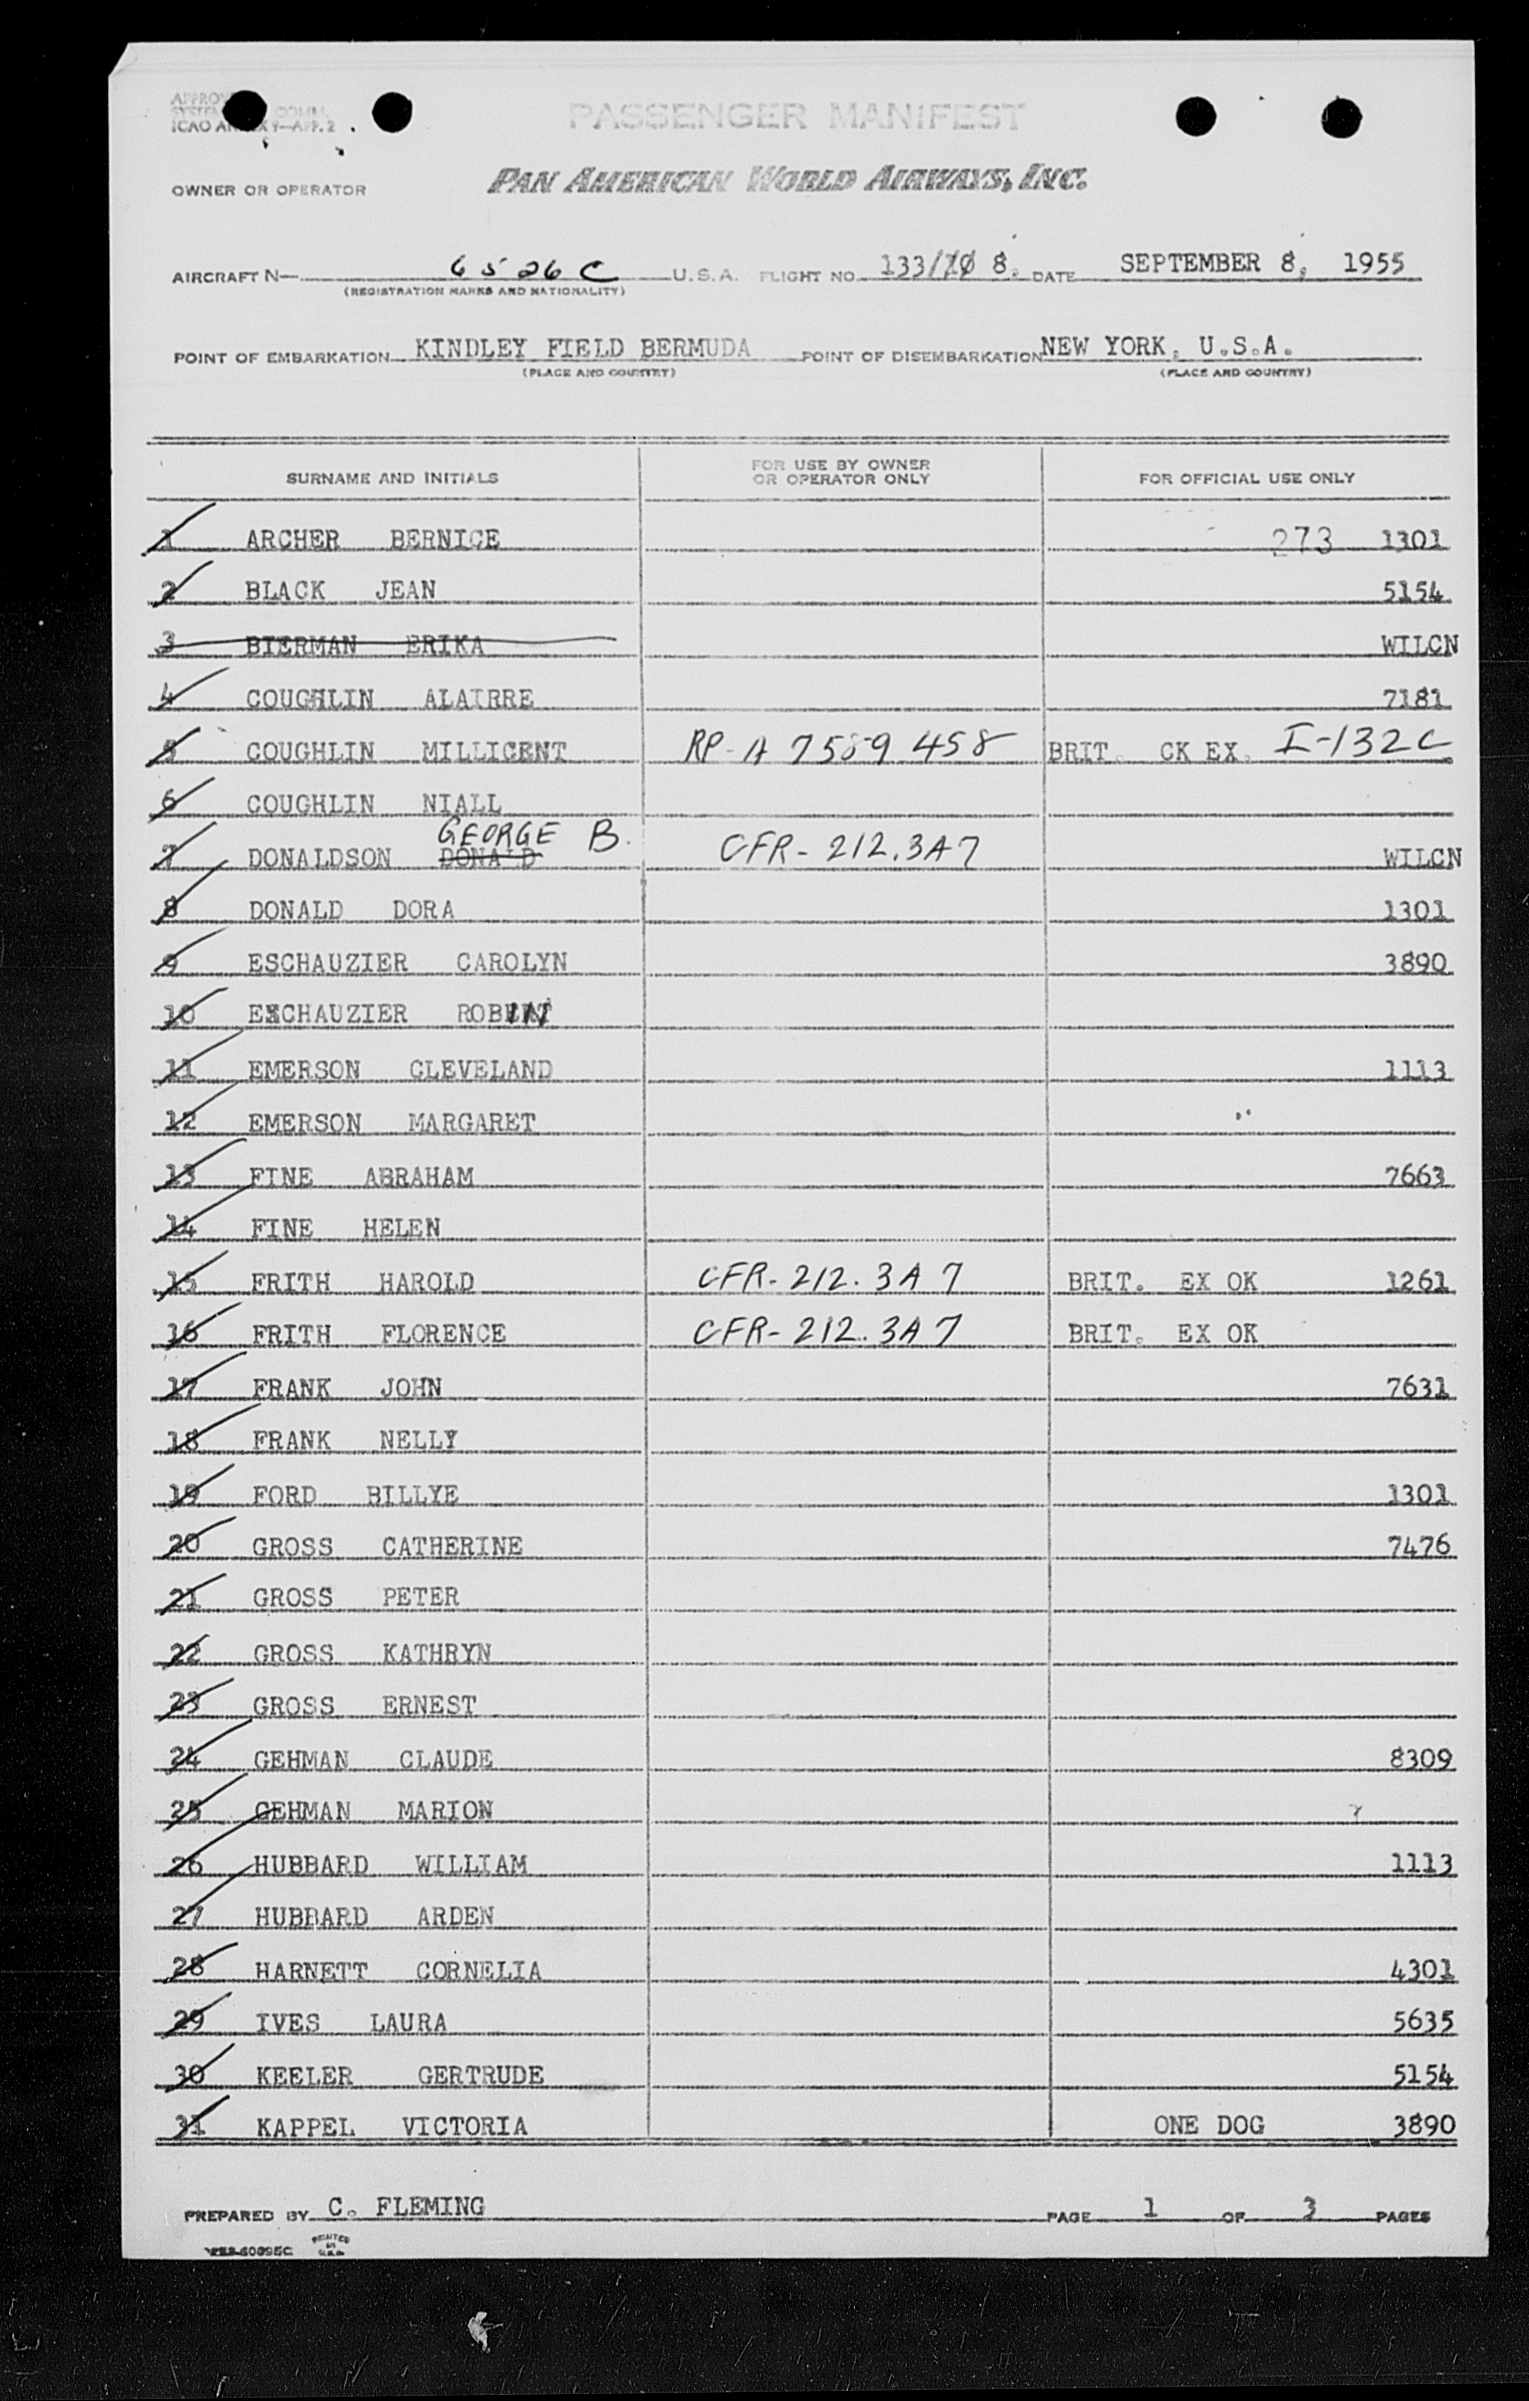 PASSENGER MANIFEST
ICAO ANNEX 9—APP. 2
OWNER OR OPERATOR PAN AMERICAN WORLD AIRWAYS, INC.
AIRCRAFT N— 6526C U.S.A. FLIGHT NO. 133/ 8. DATE SEPTEMBER 8, 1955
(REGISTRATION MARKS AND NATIONALITY)
POINT OF EMBARKATION KINDLEY FIELD BERMUDA POINT OF DISEMBARKATION NEW YORK, U.S.A.
(PLACE AND COUNTRY) (PLACE AND COUNTRY)
SURNAME AND INITIALS FOR USE BY OWNER OR OPERATOR ONLY FOR OFFICIAL USE ONLY
1 ARCHER BERNICE 273 1301
2 BLACK JEAN 5154
3 BIERMAN ERIKA WILCN
4 COUGHLIN ALAIRRE 7181
5 COUGHLIN MILLICENT RP-A 7589 458 BRIT. CK EX. I-132C
6 COUGHLIN NIALL
GEORGE B.
7 DONALDSON DONALD CFR-212.3A7 WILCN
8 DONALD DORA 1301
9 ESCHAUZIER CAROLYN 3890
10 ESCHAUZIER ROBERT
11 EMERSON CLEVELAND 1113
12 EMERSON MARGARET
13 FINE ABRAHAM 7663
14 FINE HELEN
15 FRITH HAROLD CFR-212.3A7 BRIT. EX OK 1261
16 FRITH FLORENCE CFR-212.3A7 BRIT. EX OK
17 FRANK JOHN 7631
18 FRANK NELLY
19 FORD BILLYE 1301
20 GROSS CATHERINE 7476
21 GROSS PETER
22 GROSS KATHRYN
23 GROSS ERNEST
24 GEHMAN CLAUDE 8309
25 GEHMAN MARION
26 HUBBARD WILLIAM 1113
27 HUBBARD ARDEN
28 HARNETT CORNELIA 4301
29 IVES LAURA 5635
30 KEELER GERTRUDE 5154
31 KAPPEL VICTORIA ONE DOG 3890
PREPARED BY C. FLEMING PAGE 1 OF 3 PAGES
PRINTED
IN
U.S.A.